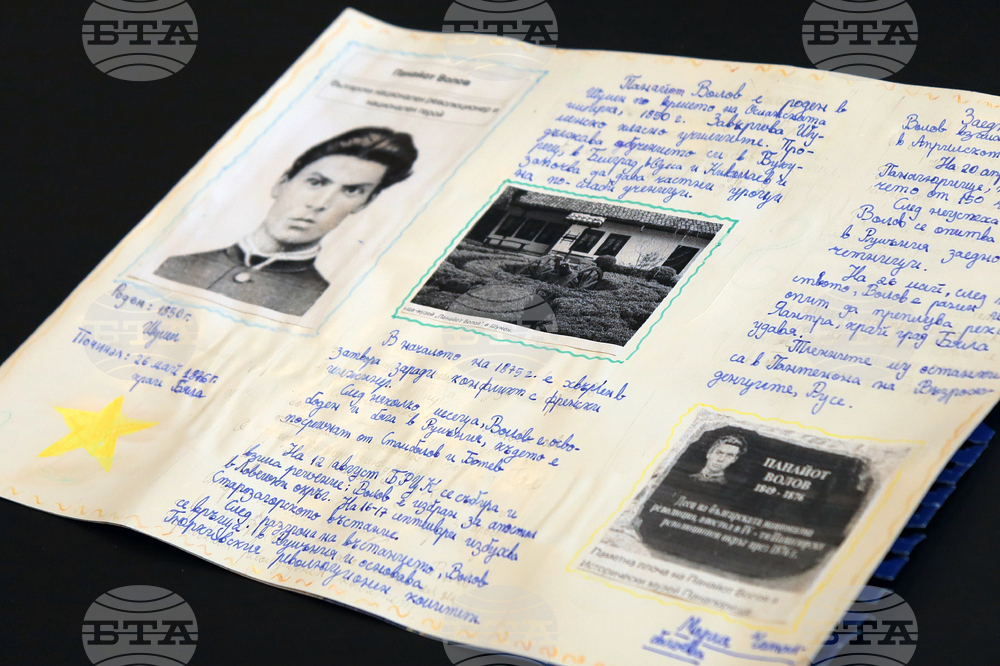 БТА
БТА
БТА
Панайот Волов
Български национален революционер и
национален герой
Роден: 1850г.
Шумен
Починал: 26 май 1876г.
край Бяла
Панайот Волов е роден в
Шумен по времето на Османската
империя, 1850 г. Завършва Шу-
менско класно училището. Про-
дължава обучението си в
в Белград, Одеса и Николаев и
започва да дава частни уроци
на по-слаби ученици.
къща-музей "Панайот Волов" в Шумен
В началото на 1875г. е хвърлен в
затвора заради конфликт с френски
инженер.
След няколко месеца, Волов е осво-
боден и бяга в Румъния, където е
посрещнат от Стамболов и Ботев
На 12 август БРЦК се събира и
взима решение: Волов е избран за апостол
в Ловешки окръг. На 16-17 септември избухва
Старозагорското въстание.
След разгрома на въстанието, Волов
се връща в Румъния и основава
Гюргевския революционен комитет
Заед
Волов взима
в Априлското
На 20 апр
Панагюрище,
чето от 150
След неуспеха
Волов се опитва
в Румъния заедно
четници.
На 26 май, след
Волов е ранен
опит да преплува рек
Янтра, край град Бяла
удавя.
Тленните му останки
са в Пантеона на Възрож-
денците, Русе.
ПАНАЙОТ
ВОЛОВ
1849 - 1876
Деец на българската национална
революция, апостол в IV - ти Пловдивски
революционен окръг през 1876 г.
Паметна плоча на Панайот Волов в
Исторически музей Панагюрище
Мария
БТА
БТА
БТА
БТА
БТА
БТА